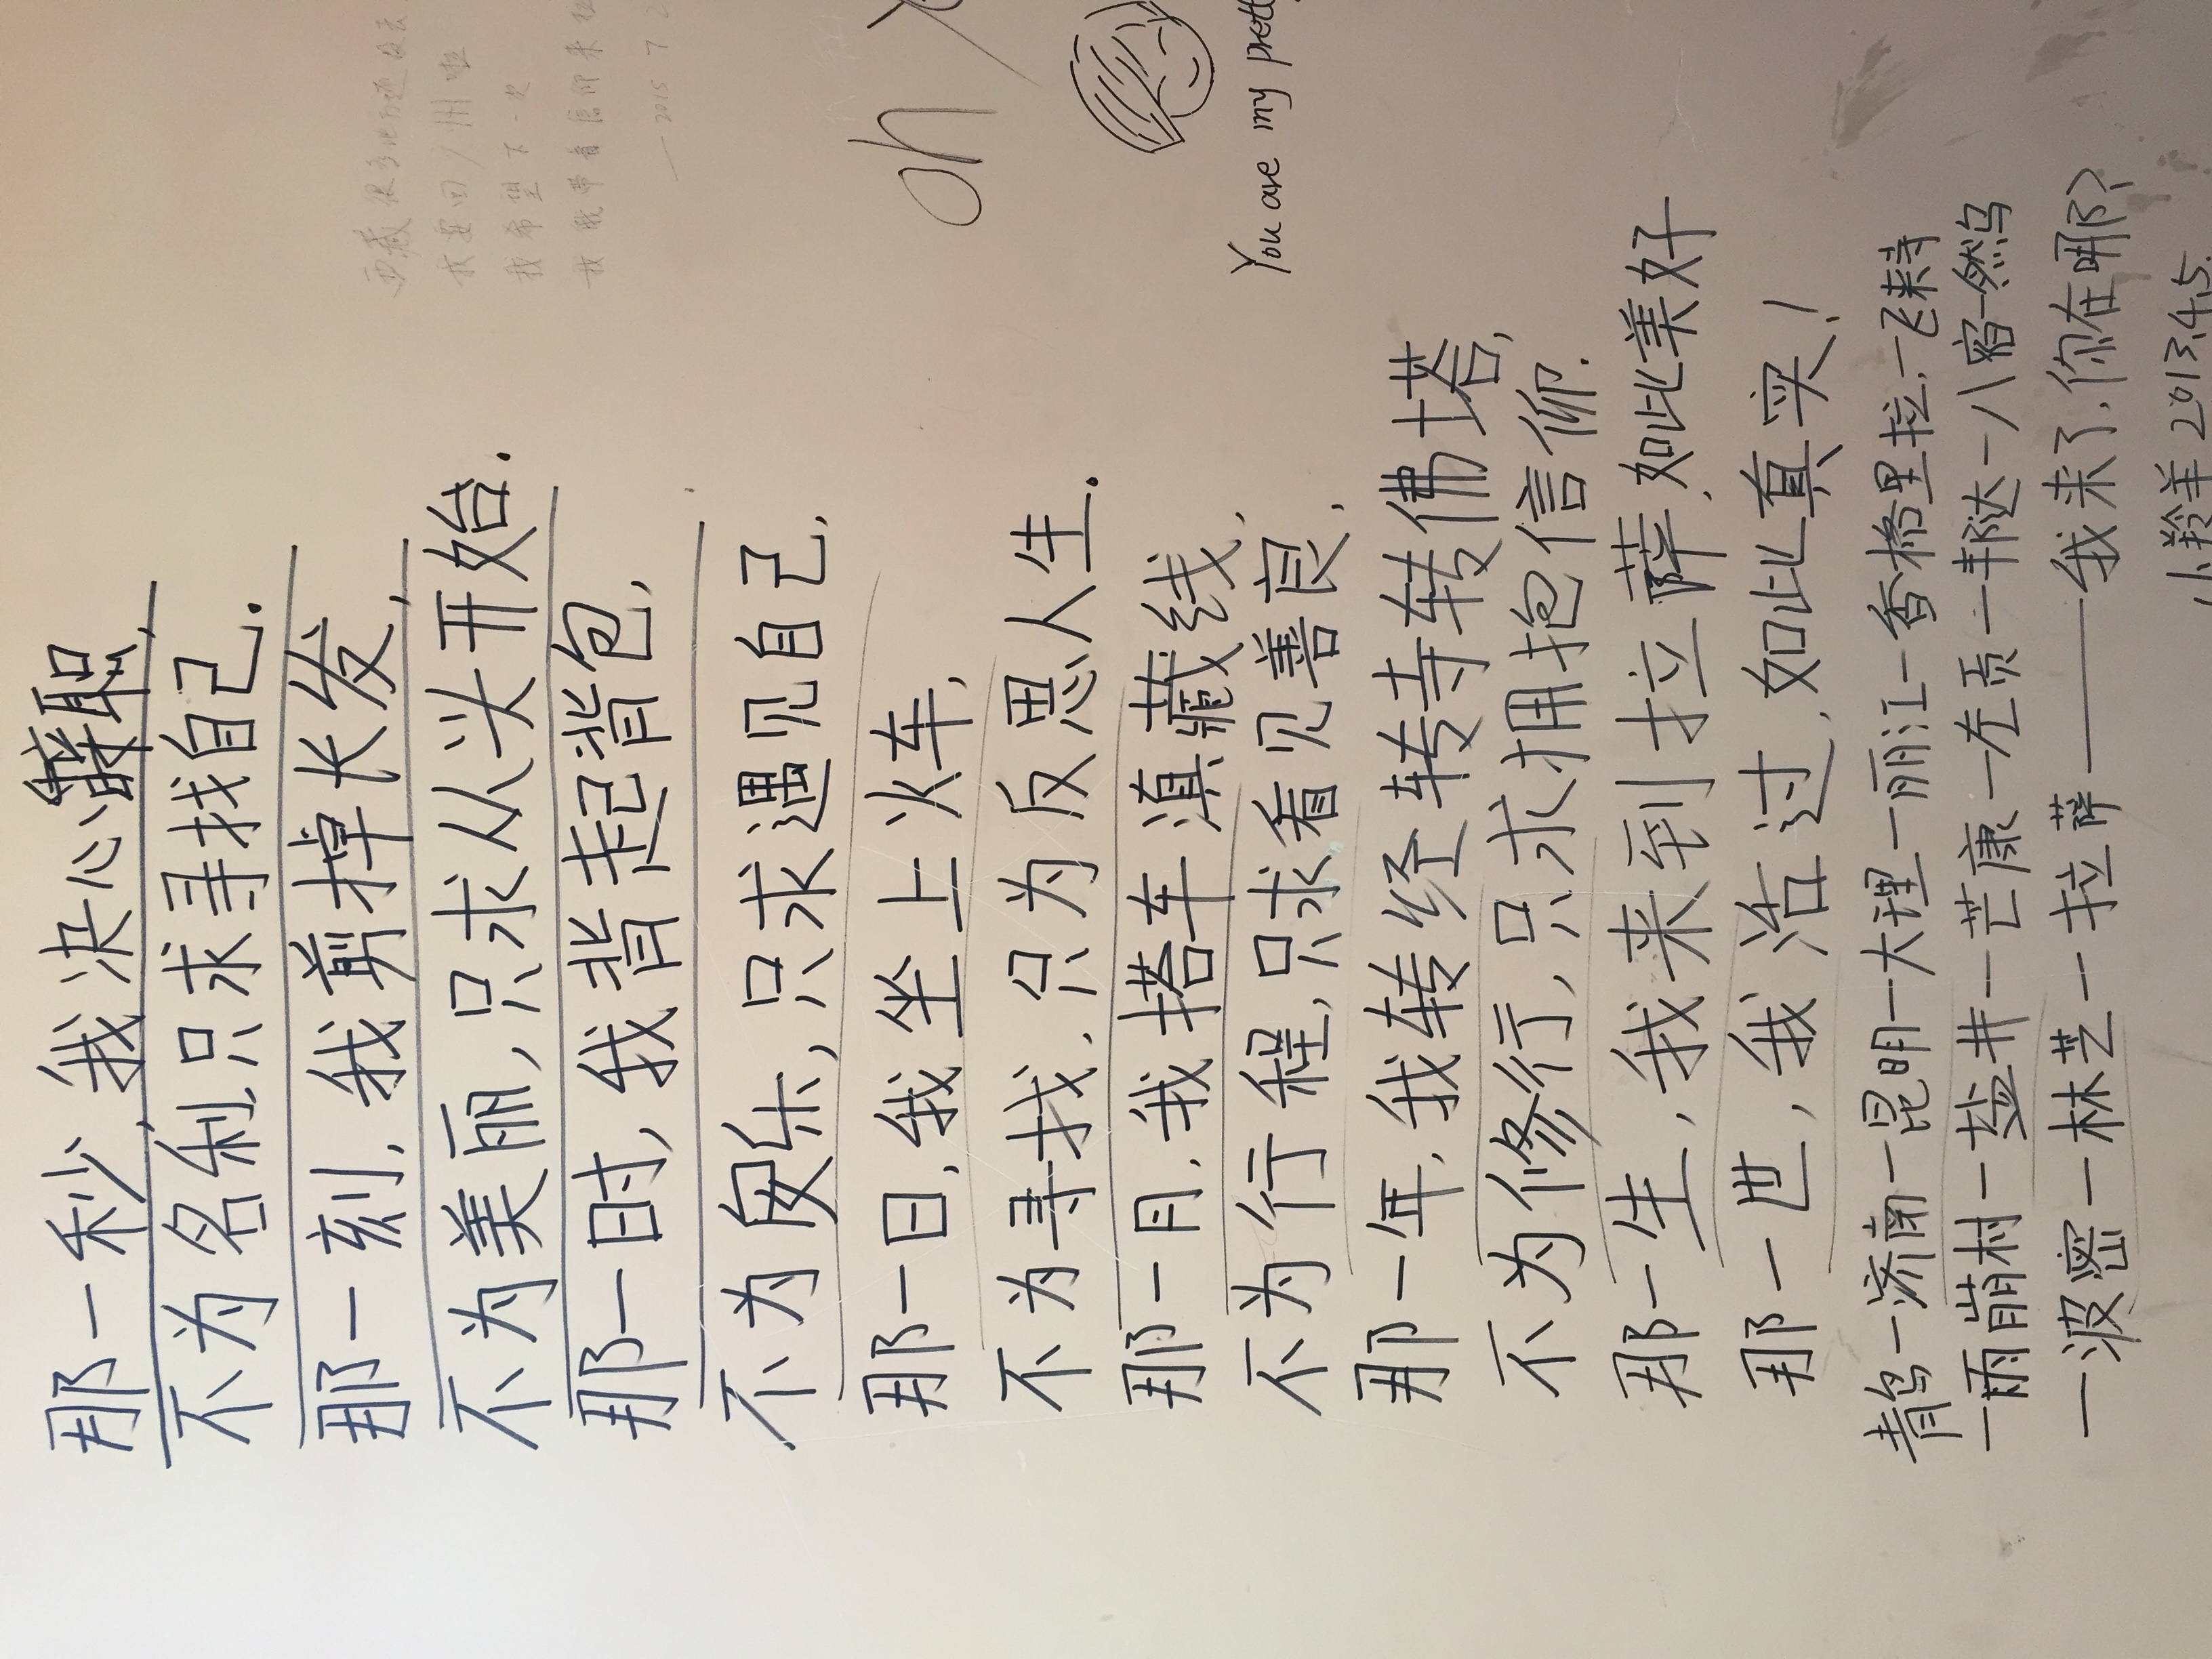 那一秒,我决心辞职,
不为名利只求寻找自己.
那一刻,我剪掉长发,
不为美丽,只求从头开始.
那一时,我背起背包,
不为娱乐,只求遇见自己,
那一日,我坐上火车,
不为寻找,只为反思人生.
那一月,我搭车滇藏线,
不为行程,只求看见善良,
那一年,我转经转寺转佛塔,
不为修行,只求拥抱信仰.
那一生,我来到拉萨,如此美好
那一世,我活过,如此真实!
青岛一济南一昆明一大理一丽江一香格里拉一飞来寺
一雨崩村一盐井一芒康一左贡一邦达一八宿一然乌
一波密一林芝一拉萨——我来了,你在哪?
小羚羊 2013.4.5.
西藏很多地方
我要回广州啦
我希望下一次
我带着信仰来
—2015 7
oh
You are my pretty